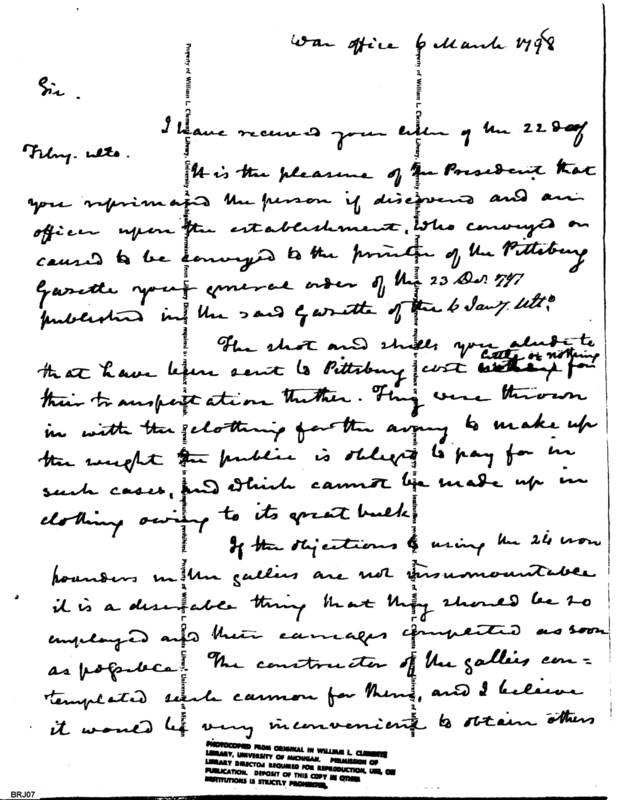 War office 6 March 1798
Sir.
I have received your letter of the 22d of
Feby. ulto.
It is the pleasure of the President that
you reprimand the person if discovered and an
officer upon the establishment, who conveyed or
caused to be conveyed to the printer of the Pittsburg
Gazette your general order of the 23 Decr 797
published in the said Gazette of the 6 Jany. Ulto.
The shot and shells you alude to
that have been sent to Pittsburg cost little or nothing for
their transportation thither. They were thrown
in with the clothing for the army to make up
the weight the public is obliged to pay for in
such cases, and which cannot be made up in
clothing owing to its great bulk.
If the objections to using the 24 iron
pounders in the gallies are not insurmountable
it is a desireable thing that they should be so
employed and their carriages completed as soon
as possible. The constructor of the gallies con=
templated such cannon for them, and I believe
it would be very inconvenient to obtain others
PHOTOCOPIED FROM ORIGINAL IN WILLIAM L. CLEMENTS
LIBRARY, UNIVERSITY OF MICHIGAN. PERMISSION OF
LIBRARY DIRECTOR REQUIRED FOR REPRODUCTION, USE, OR
PUBLICATION. DEPOSIT OF THIS COPY IN OTHER
INSTITUTIONS IS STRICTLY PROHIBITED.
BRJ07